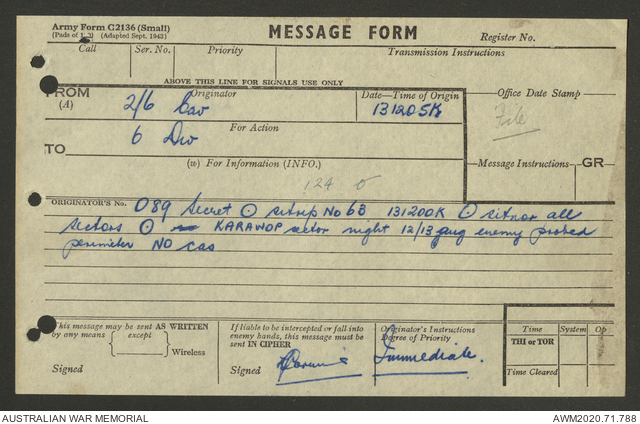 Army Form C2136 (Small)
(Pads of 1 0) (Adapted Sept. 1943)
MESSAGE FORM
Register No.
Call Ser. No. Priority Transmission Instructions
ABOVE THIS LINE FOR SIGNALS USE ONLY
FROM Originator Date—Time of Origin Office Date Stamp
(A) 2/6 Cav 131205K File
6 Div For Action
TO
(w) For Information (INFO.) Message Instructions GR
124
ORIGINATOR'S No. O89 Secret ⊙ sitrep No 63 131200K ⊙ sitnor all
sectors ⊙ KARAWOP sector night 12/13 aug enemy probed
perimeter NO cas
This message may be sent AS WRITTEN
by any means except
Wireless
Signed
If liable to be intercepted or fall into
enemy hands, this message must be
sent IN CIPHER
Signed
Originator's Instructions
Degree of Priority
Immediate.
Time System Op
THI or TOR
Time Cleared
AUSTRALIAN WAR MEMORIAL AWM2020.71.788